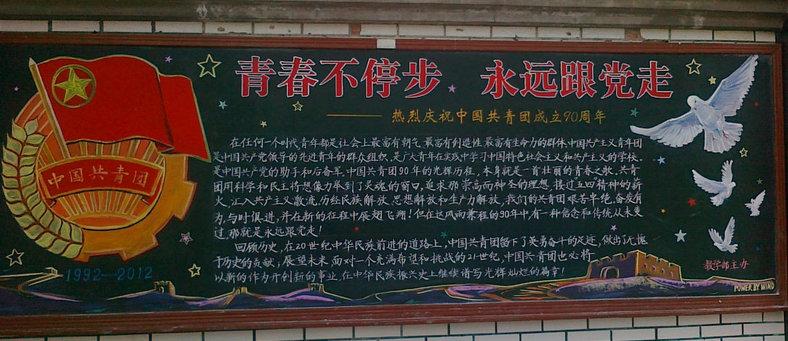 青春不停步 永远跟党走
——— 热烈庆祝中国共青团成立90周年
中国共青团
1992-2012
在任何一个时代青年都是社会上最富有朝气、最富有创造性、最富有生命力的群体,中国共产主义青年团
是中国共产党领导的先进青年的群众组织,是广大青年在实践中学习中国特色社会主义和共产主义的学校,
是中国共产党的助手和后备军,中国共青团90年的光辉历程,本身就是一首壮丽的青春之歌,共青
团用科学和民主将想像力牵到了灵魂的窗口,追求那崇高而神圣的理想,接过五四精神的薪
火,汇入共产主义激流,历经民族解放思想解放和生产力解放,我们的共青团艰苦卓绝,奋发有
为,与时俱进,并在新的征程中展翅飞翔!但在这风雨兼程的90年中,有一种信念和传统从未变
过,那就是永远跟党走!
回顾历史,在20世纪中华民族前进的道路上,中国共青团留下了英勇奋斗的足迹,做出了无愧
于历史的贡献,展望未来,面对一个充满希望和挑战的21世纪,中国共青团也必将
以新的作为开创新的事业,在中华民族振兴史上继续谱写光辉灿烂的篇章!
教学部主办
POWER BY MIND